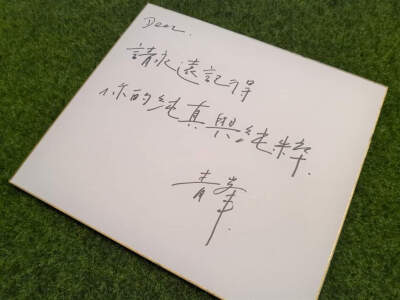 Dear.
請永遠記得
你的純真與純粹.
青峯